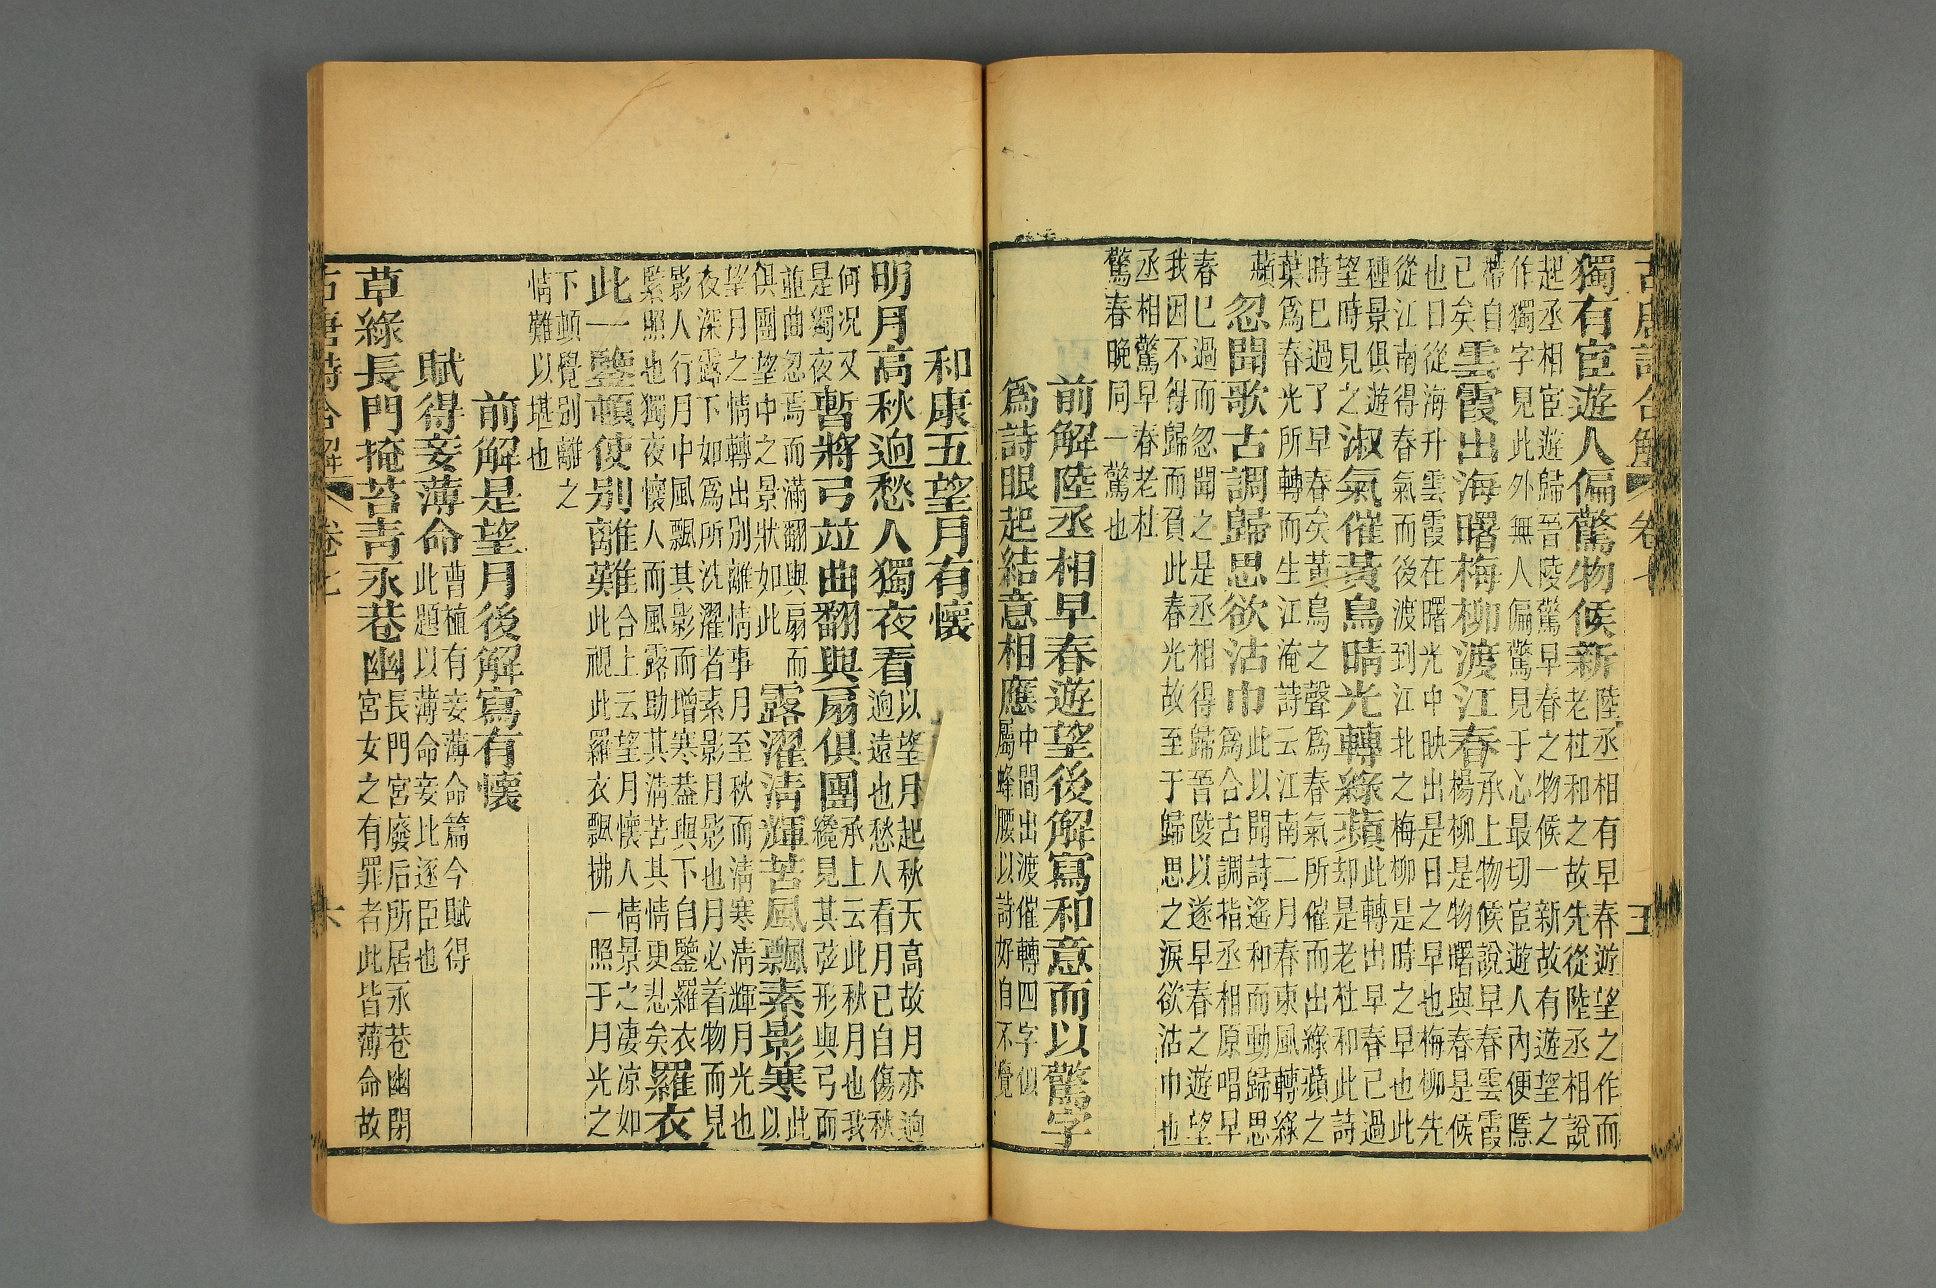 古唐詩合解 卷七 五
獨有宦遊人偏驚物候新陸丞相有早春遊望之作而
老杜和之故先從陸丞相說
起丞相宦遊歸晉陵驚早春之物候一新故有遊望之
作獨字見此外無人偏驚見于心最切宦遊人內便隱
帶自
已矣雲霞出海曙梅柳渡江春承上物候說早春雲霞
楊柳是物曙與春是候
也日從海升雲霞在曙光中映出是日之早也梅柳先
從江南得春氣而後渡到江北之梅柳是時之早也此
種景俱遊
望時見之淑氣催黃鳥晴光轉綠蘋此轉出早春已過
却是老杜和此詩
時已過了早春矣黃鳥之聲爲春氣所催而出綠蘋之
葉爲春光所轉而生江淹詩云江南二月春東風轉綠
蘋忽聞歌古調歸思欲沾巾此以聞詩遙和而動歸思
爲合古調指丞相原唱早
春已過而忽聞之是丞相得歸晉陵以遂早春之遊望
我因不得歸而負此春光故至于歸思之淚欲沾巾也
丞相驚早春老杜
驚春晚同一驚也
前解陸丞相早春遊望後解寫和意而以驚字
爲詩眼起結意相應中間出渡催轉四字似
屬蜂腰以詩好自不覺
和康五望月有懷
明月高秋迥愁人獨夜看以望月起秋天高故月亦迥
迥遠也愁人看月已自傷秋
何况又
是獨夜暫將弓竝曲翻與扇俱團承上云此秋月也我
纔見其弦形與弓而
並曲忽焉而滿翻與扇而
俱團望中之景狀如此露濯清輝苦風飄素影寒此
以
望月之情轉出別離情事月至秋而清寒清輝月光也
夜深露下如爲所洗濯者素影月影也月必着物而見
影人行月中風飄其影而增寒葢與下自鑒羅衣
緊照也獨夜懷人而風露助其淸苦其情更悲矣羅衣
此一鑒頓使别離難離合上云望月懷人情景之凄凉如
此視此羅衣飄拂一照于月光之
下頓覺别離之
情難以堪也
前解是望月後解寫有懷
賦得妾薄命曹植有妾薄命篇今賦得
此題以薄命妾比逐臣也
草綠長門掩苔青永巷幽長門宮廢后所居永巷幽閉
宮女之有罪者此皆薄命故
古唐詩合解 卷七 六